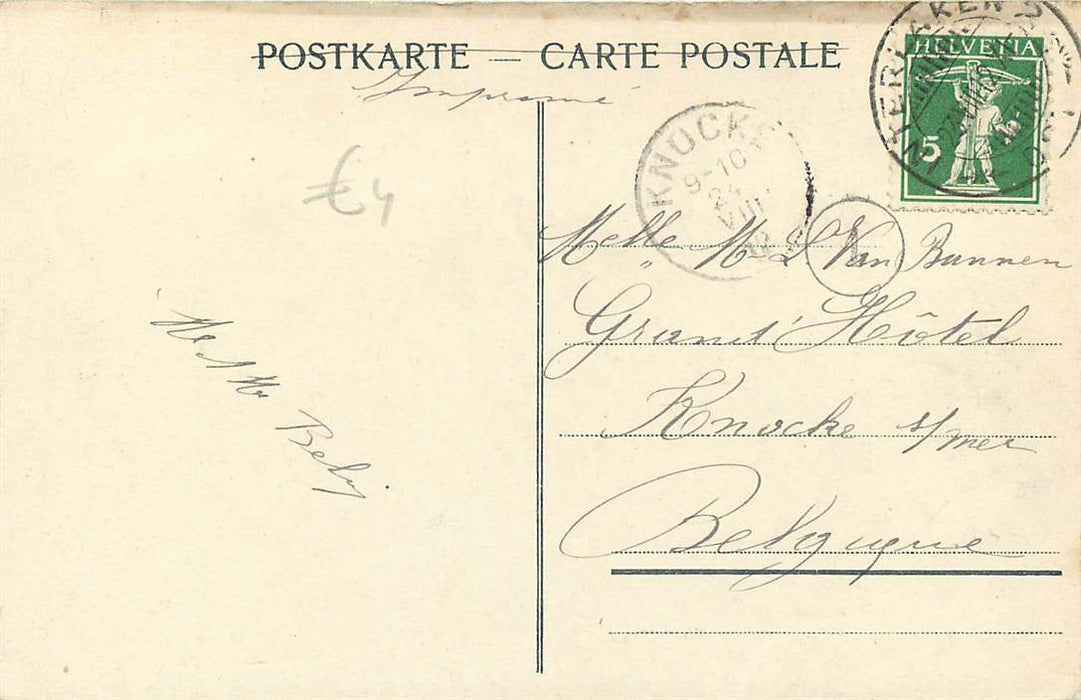 POSTKARTE — CARTE POSTALE
Imprimé
HELVETIA
5
INTERLAKEN
KNOCKE
9-10
24
VIII
1
€4
Melle M. L. Van Bunnen
Grand Hôtel
Knocke s/mer
Belgique